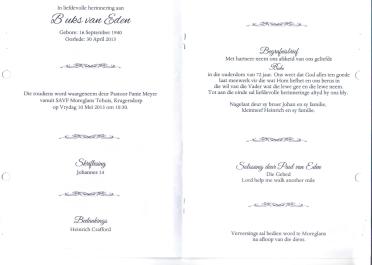 In liefdevolle herinnering aan
Buks van Eden
Gebore: 16 September 1940
Oorlede: 30 April 2013
Die roudiens word waargeneem deur Pastoor Fanie Meyer
vanuit SAVF Moreglans Tehuis, Krugersdorp
op Vrydag 10 Mei 2013 om 10:30.
Skriflesing
Johannes 14
Bedankings
Heinrich Crafford
Begrafnisbrief
Met hartseer neem ons afskeid van ons geliefde
Buks
in die ouderdom van 72 jaar. Ons weet dat God alles ten goede
laat meewerk vir die wat Hom liefhet en ons berus in
die wil van die Vader wat die lewe gee en die lewe neem.
Tot aan die einde sal liefdevolle herinneringe altyd by ons bly.
Nagelaat deur sy broer Johan en sy familie,
Kleinneef Heinrich en sy familie.
Solosang deur Paul van Eden
Die Gebed
Lord help me walk another mile
Verversings sal bedien word te Moreglans
na afloop van die diens.